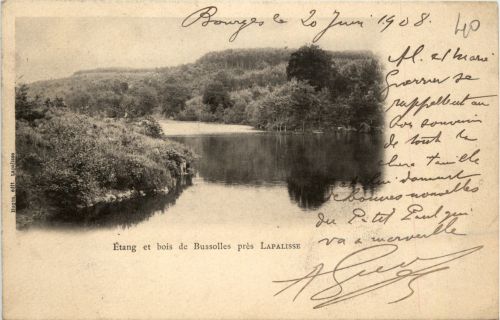 Bourges le 20 Juin 1908.
40
M. et Marie
se
rappellent au
bon souvenir
de toute la
chère famille
lui donnant
bonnes nouvelles
du Petit Paul qui
va a merveille
Étang et bois de Bussolles près LAPALISSE
édit. LAPALISSE